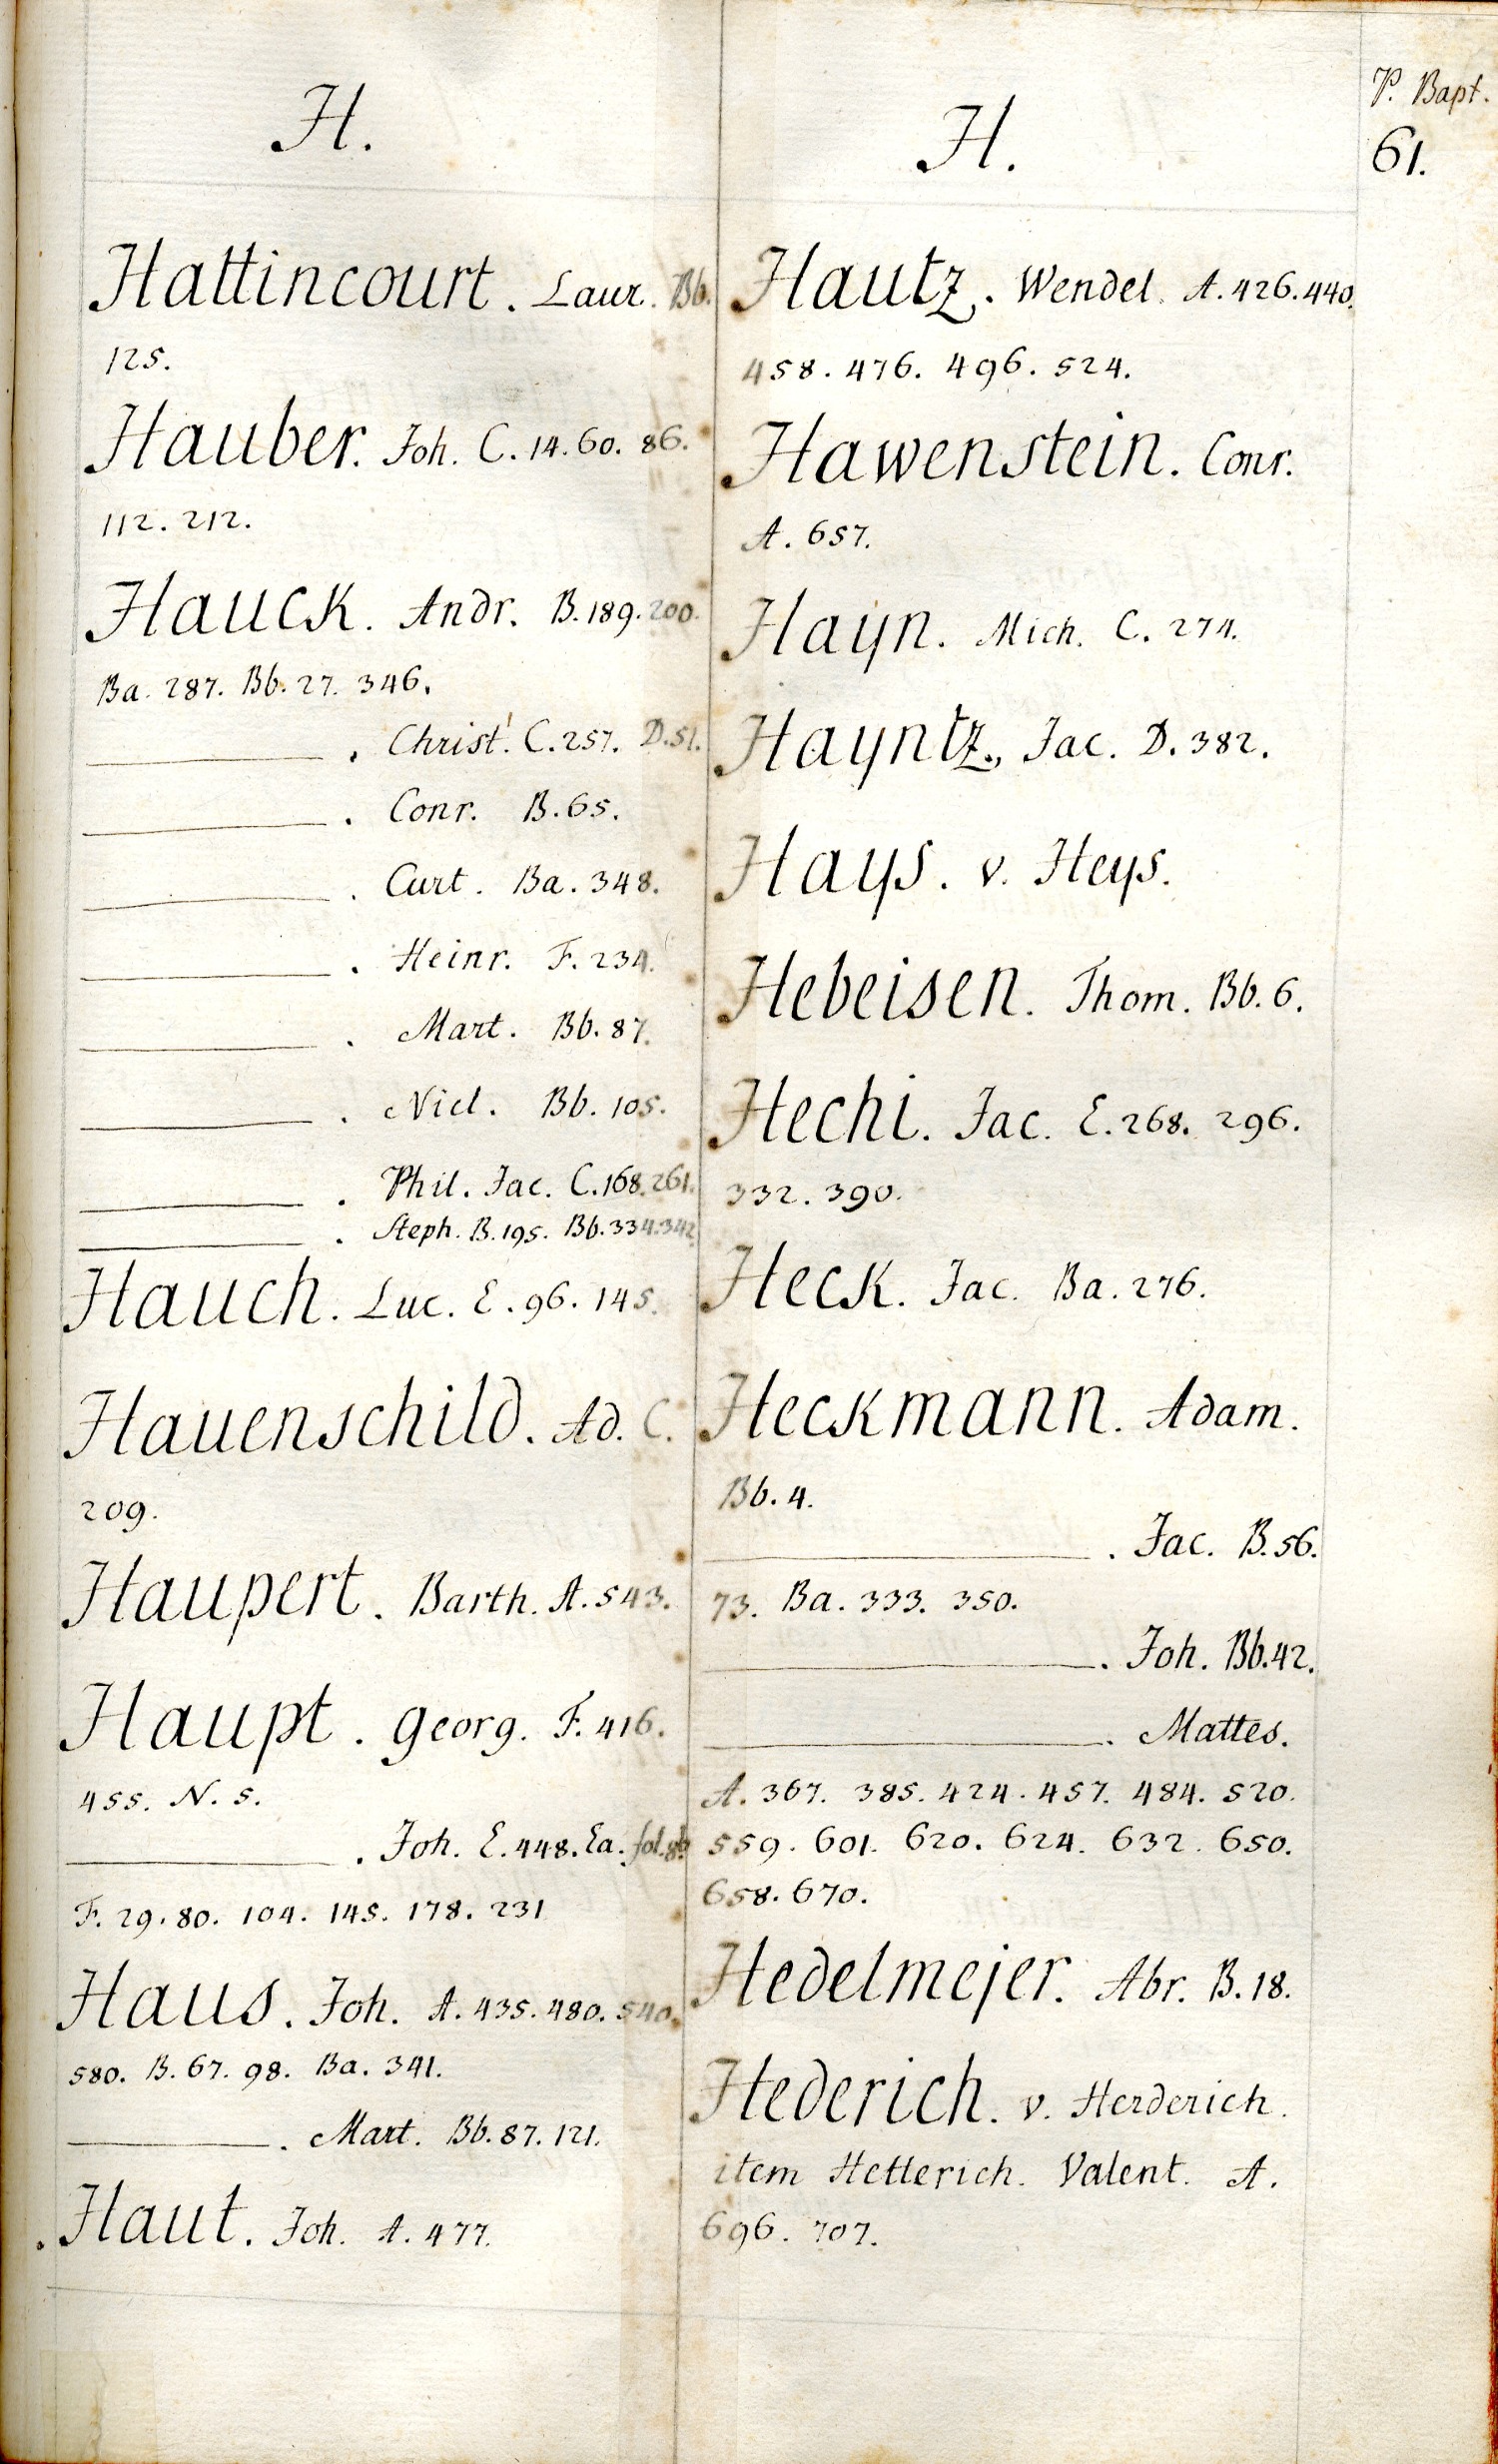 P. Bapt.
61.
H.
Hattincourt. Laur. Bb.
125.
Hauber. Joh. C. 14. 60. 86.
112. 212.
Hauck. Andr. B. 189. 200.
Ba. 287. Bb. 27. 346.
. Christ. C. 257. D. 51.
. Conr. B. 65.
. Curt. Ba. 348.
. Heinr. F. 234.
. Mart. Bb. 87.
. Nicl. Bb. 105.
. Phil. Jac. C. 168. 261.
. Steph. B. 195. Bb. 334. 342.
Hauch. Luc. E. 96. 145.
Hauenschild. Ad. C.
209.
Haupert. Barth. A. 543.
Haupt. Georg. F. 416.
455. N. 5.
. Joh. E. 448. Ea. fol.
F. 29. 80. 104. 145. 178. 231
Haus. Joh. A. 435. 480. 540.
580. B. 67. 98. Ba. 341.
. Mart. Bb. 87. 121.
Haut. Joh. A. 477.
H.
Hautz. Wendel. A. 426. 440.
458. 476. 496. 524.
Hawenstein. Conr.
A. 657.
Hayn. Mich. C. 274.
Hayntz. Jac. D. 382.
Hays. v. Heys.
Hebeisen. Thom. Bb. 6.
Hechi. Jac. E. 268. 296.
332. 390.
Heck. Jac. Ba. 276.
Heckmann. Adam.
Bb. 4.
. Jac. B. 56.
73. Ba. 333. 350.
. Joh. Bb. 42.
. Mattes.
A. 367. 385. 424. 457. 484. 520.
559. 601. 620. 624. 632. 650.
658. 670.
Hedelmejer. Abr. B. 18.
Hederich. v. Herderich.
item Hetterich. Valent. A.
696. 707.